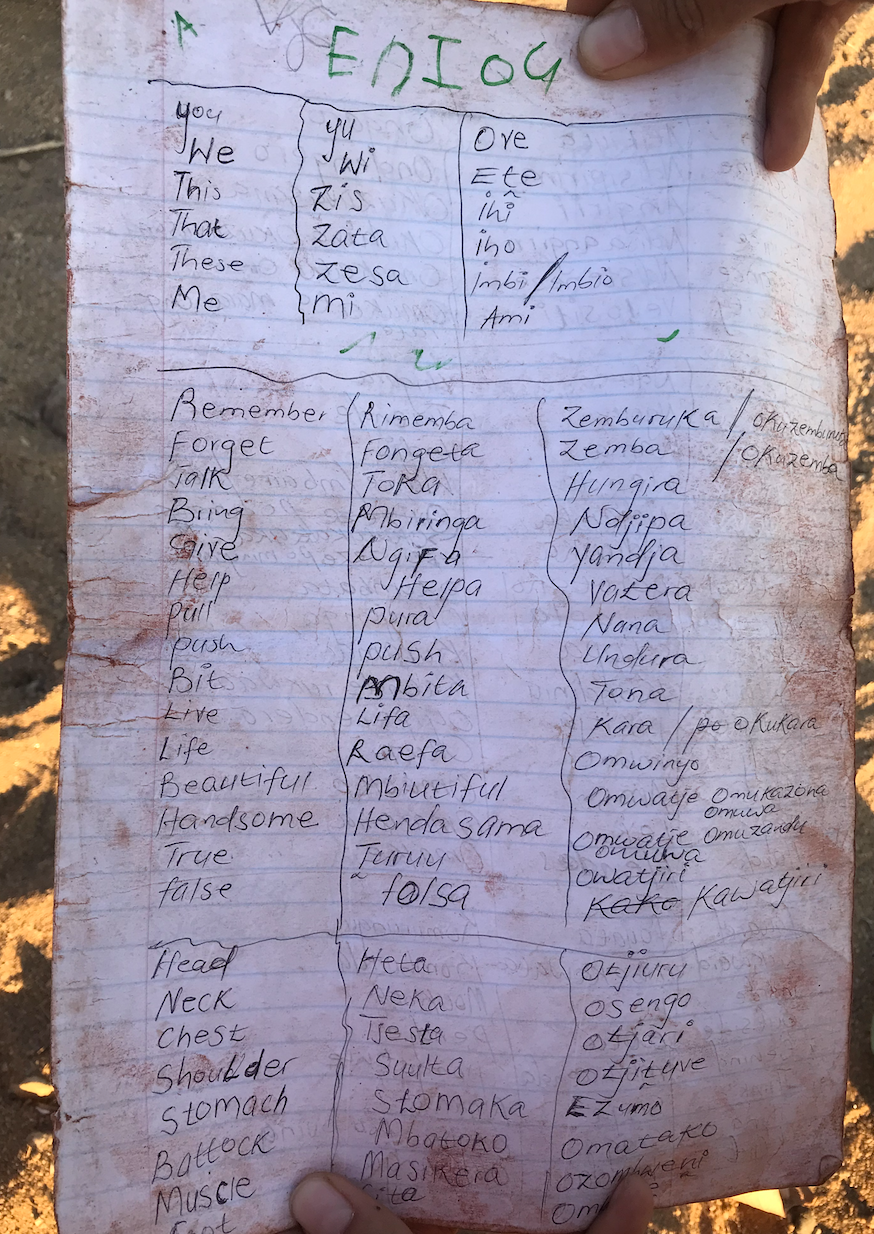 A
ENIOG
you yu Ove
We Wi Ete
This Zis ihî
That Zata iho
These Zesa Imbi / Imbio
Me mi Ami
Remember Rimemba Zemburuka /
Forget Fongeta Zemba / Okuzemba
Talk Toka Hungira
Bring Mbiringa Ndjipa
Give Ngifa yandja
Help Helpa Vatera
pull pura Nana
push push Undura
Bit Mbita Tona
Live Lifa Kara / okukara
Life Raefa Omwinyo
Beautiful Mbiutiful Omwatje Omukazona
omuwa
Handsome Hendasama Omwatje Omuzandu
omuwa
True Turuu Owatjiri
false folsa Kako Kawatjiri
Head Heta Otjiuru
Neck Neka osengo
Chest Tjesta otjari
Shoulder Suulta otjituve
Stomach Stomaka Ezumo
Battock Mbatoko Omatako
Muscle Masikera